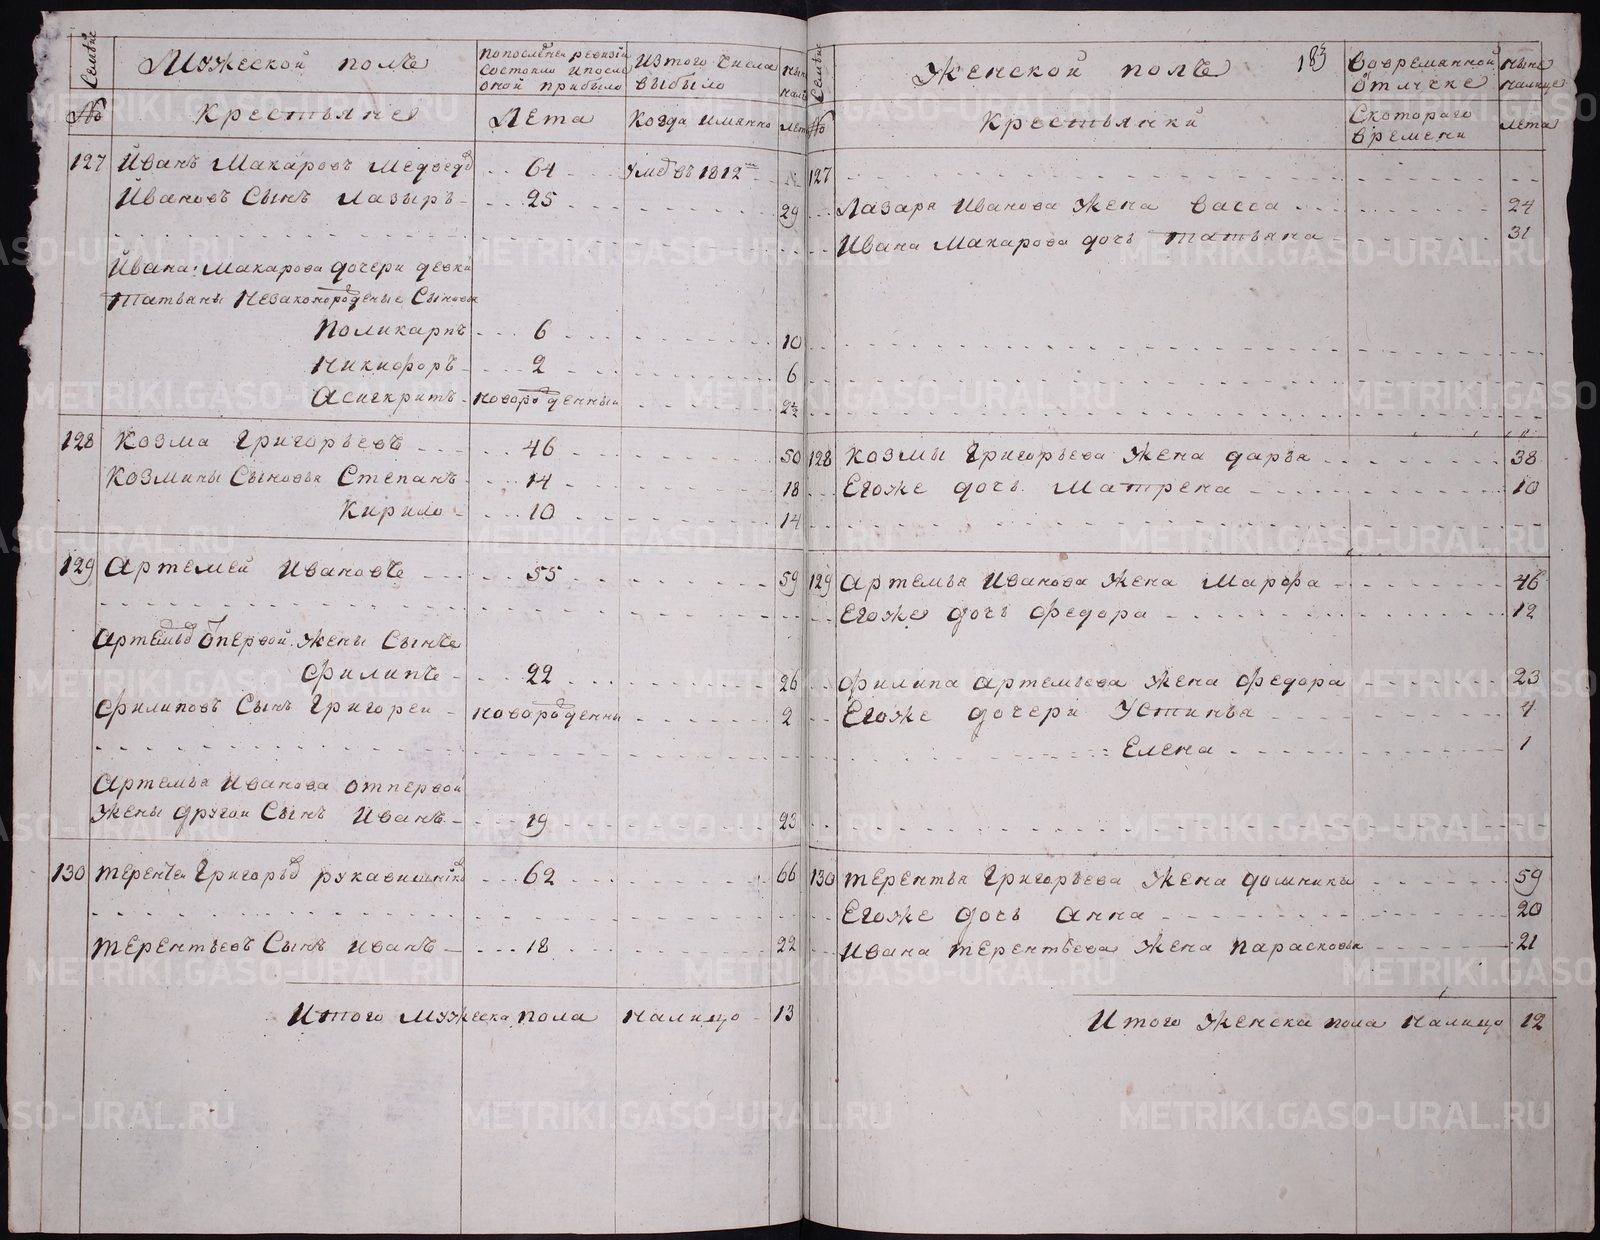 Семьи
Мужеской полъ
По последней ревизии
состояло и после
оной прибыло
Из того числа
выбыло
ныне
налицо
№
Крестьяне
Лета
Когда имянно
лета
127 Иванъ Макаровъ Медведв 64 Умре въ 1812
Ивановъ Сынъ Лазырь 25 29
Ивана Макарова дочери девки
Татьяны незаконорожденые Сыновья
Поликарпъ 6 10
Никифоръ 2 6
Асигкритъ новорожденныи 2½
128 Козма Григорьевъ 46 50
Козмины Сыновья Степанъ 14 18
Кирило 10 14
129 Артемеи Ивановъ 55 59
Артемья от первой жены Сынъ
Филипъ 22 26
Филиповъ Сынъ Григореи новорожденны 2
Артемья Иванова от первой
жены другои Сынъ Иванъ 19 23
130 Терентеи Григорьв рукавишнико 62 66
Терентьевъ Сынъ Иванъ 18 22
Итого Мужеска пола налицо 13
Семьи
Женской полъ
183
Во временной
отлучке
ныне
налице
№
Крестьянки
С котораго
времени
лета
127
Лазаря Иванова жена Васса 24
Ивана Макарова дочь Татьяна 31
128 Козмы Григорьева жена дарья 38
Егоже дочь Матрена 10
129 Артемья Иванова жена Марфа 46
Егоже дочь Федора 12
Филипа Артемьева жена Федора 23
Егоже дочери Устинья 4
Елена 1
130 Терентья Григорьева жена домника 59
Егоже дочь Анна 20
Ивана Терентьева жена парасковья 21
Итого женска пола налицо 12
METRIKI.GASO-URAL.RU